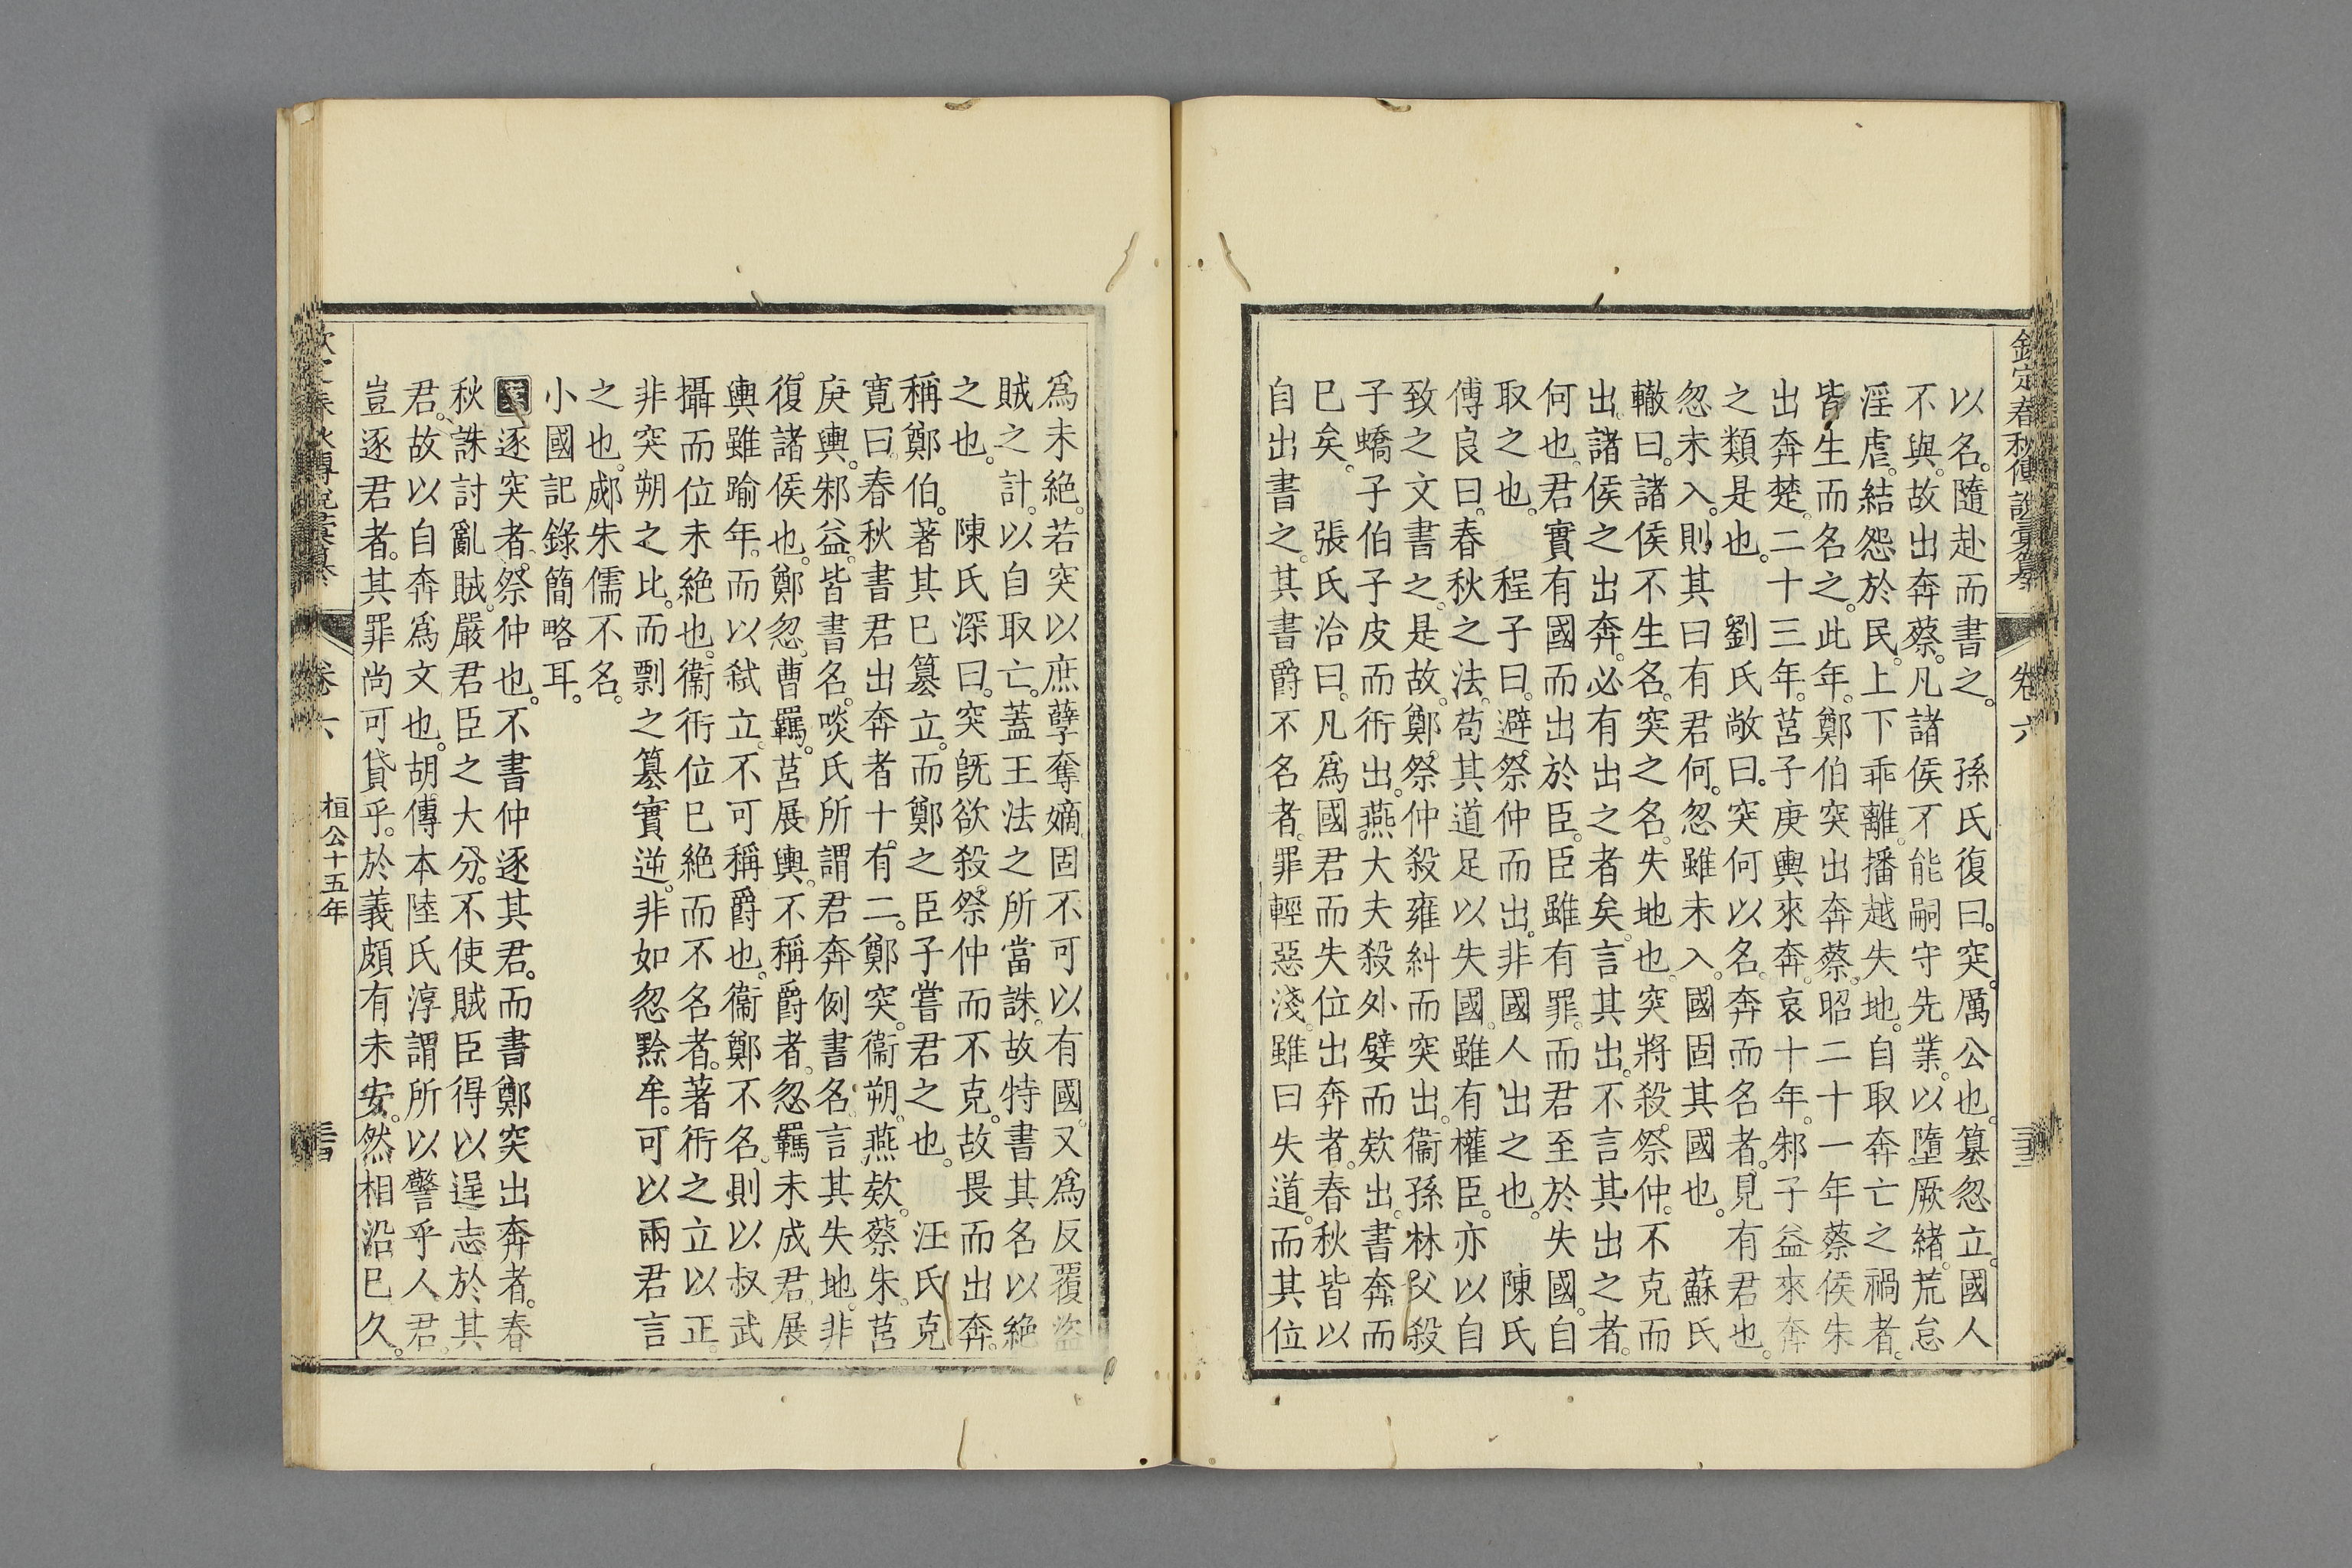 欽定春秋傳說彙纂 卷六
以名。隨赴而書之。 孫氏復曰。突。厲公也。簒忽立。國人
不與。故出奔蔡。凡諸侯不能嗣守先業。以墮厥緒。荒怠
淫虐。結怨於民。上下乖離。播越失地。自取奔亡之禍者。
皆生而名之。此年。鄭伯突出奔蔡。昭二十一年蔡侯朱
出奔楚。二十三年。莒子庚輿來奔。哀十年。邾子益來奔
之類是也。 劉氏敞曰。突何以名。奔而名者。見有君也。
忽未入。則其曰有君何。忽雖未入。國固其國也。 蘇氏
轍曰。諸侯不生名。突之名。失地也。突將殺祭仲。不克而
出。諸侯之出奔。必有出之者矣。言其出。不言其出之者。
何也。君實有國而出於臣。臣雖有罪。而君至於失國。自
取之也。 程子曰。避祭仲而出。非國人出之也。 陳氏
傅良曰。春秋之法。苟其道足以失國。雖有權臣。亦以自
致之文書之。是故。鄭祭仲殺雍糾而突出。衞孫林父殺
子蟜子伯子皮而衎出。燕大夫殺外嬖而欵出。書奔而
巳矣。 張氏洽曰。凡爲國君而失位出奔者。春秋皆以
自出書之。其書爵不名者。罪輕惡淺。雖曰失道。而其位
爲未絶。若突以庶孽奪嫡。固不可以有國。又爲反覆盜
賊之計。以自取亡。蓋王法之所當誅。故特書其名以絶
之也。 陳氏深曰。突旣欲殺祭仲而不克。故畏而出奔。
稱鄭伯。著其巳簒立。而鄭之臣子嘗君之也。 汪氏克
寬曰。春秋書君出奔者十。有二。鄭突。衞朔。燕欵。蔡朱。莒
庚輿。邾益。皆書名。啖氏所謂君奔例書名。言其失地。非
復諸侯也。鄭忽。曹羈。莒展輿。不稱爵者。忽羈未成君。展
輿雖踰年。而以弑立。不可稱爵也。衞鄭不名。則以叔武
攝而位未絶也。衞衎位巳絶而不名者。著衎之立以正。
非突朔之比。而剽之簒實逆。非如忽黔牟。可以兩君言
之也。郕朱儒不名。
小國記錄簡略耳。
案逐突者。祭仲也。不書仲逐其君。而書鄭突出奔者。春
秋誅討亂賊。嚴君臣之大分。不使賊臣得以逞志於其
君。故以自奔爲文也。胡傳本陸氏淳謂所以警乎人君。
豈逐君者。其罪尚可貸乎。於義頗有未安。然相沿巳久。
卷六 桓公十五年